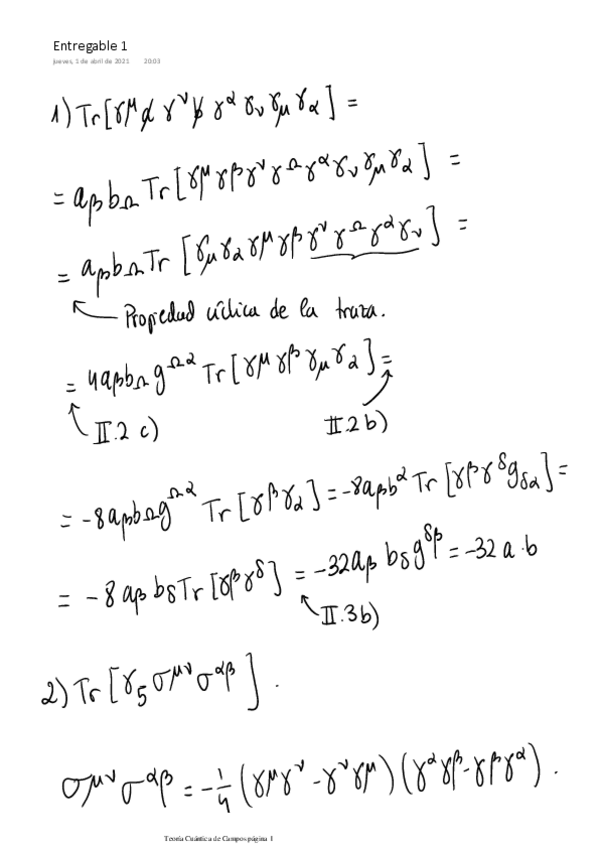 Entregable 1
jueves, 1 de abril de 2021 20:03
1) Tr[γ^μ a̸ γ^ν b̸ γ^α γ_ν γ_μ γ_α] =
= a_β b_Ω Tr[γ^μ γ^β γ^ν γ^Ω γ^α γ_ν γ_μ γ_α] =
= a_β b_Ω Tr[γ_μ γ_α γ^μ γ^β γ^ν γ^Ω γ^α γ_ν] =
Propiedad cíclica de la traza.
= 4 a_β b_Ω g^{Ωα} Tr[γ^μ γ^β γ_μ γ_α] =
II.2 c) II.2 b)
= -8 a_β b_Ω g^{Ωα} Tr[γ^β γ_α] = -8 a_β b^α Tr[γ^β γ^δ g_{δα}] =
= -8 a_β b_δ Tr[γ^β γ^δ] = -32 a_β b_δ g^{δβ} = -32 a·b
II.3b)
2) Tr[γ_5 σ^{μν} σ^{αβ}].
σ^{μν} σ^{αβ} = -1/4 (γ^μ γ^ν - γ^ν γ^μ)(γ^α γ^β - γ^β γ^α).
Teoría Cuántica de Campos página 1